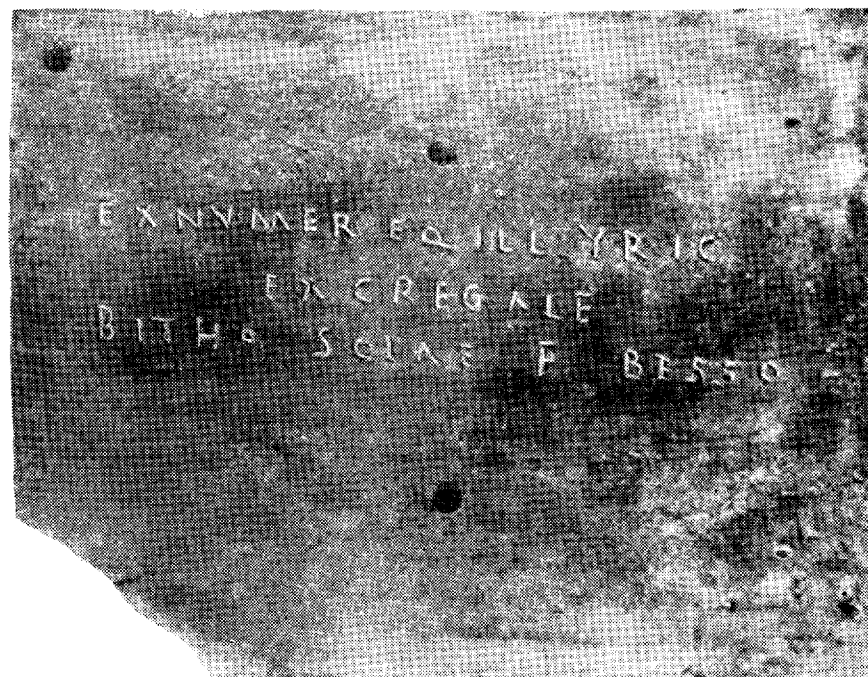 EXNVMER EQ ILLYRIC
EX CREGALE
BITHO SCIAE F BESSO